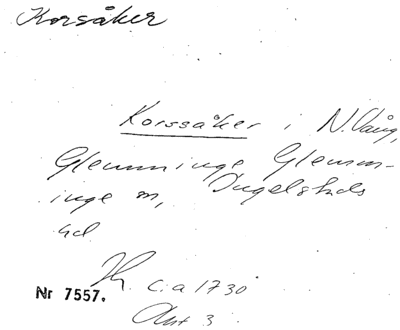 Korsåker
Korssåker i N. Vång,
Glemminge Glemm-
inge sn, Ingelstads
hd.
c:a 1730
Nr 7557.
Ant 3